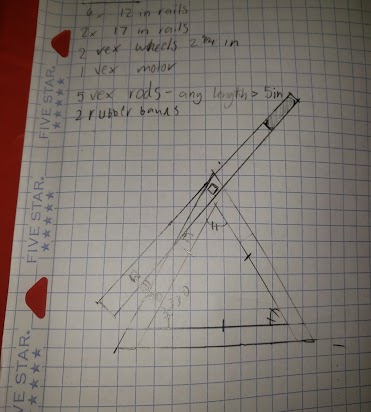 4x 12 in rails
2x 17 in rails
2 vex wheels in
1 vex motor
5 vex rods - any length > 5in
2 rubber bands
FIVE STAR.
FIVE STAR.
FIVE STAR.